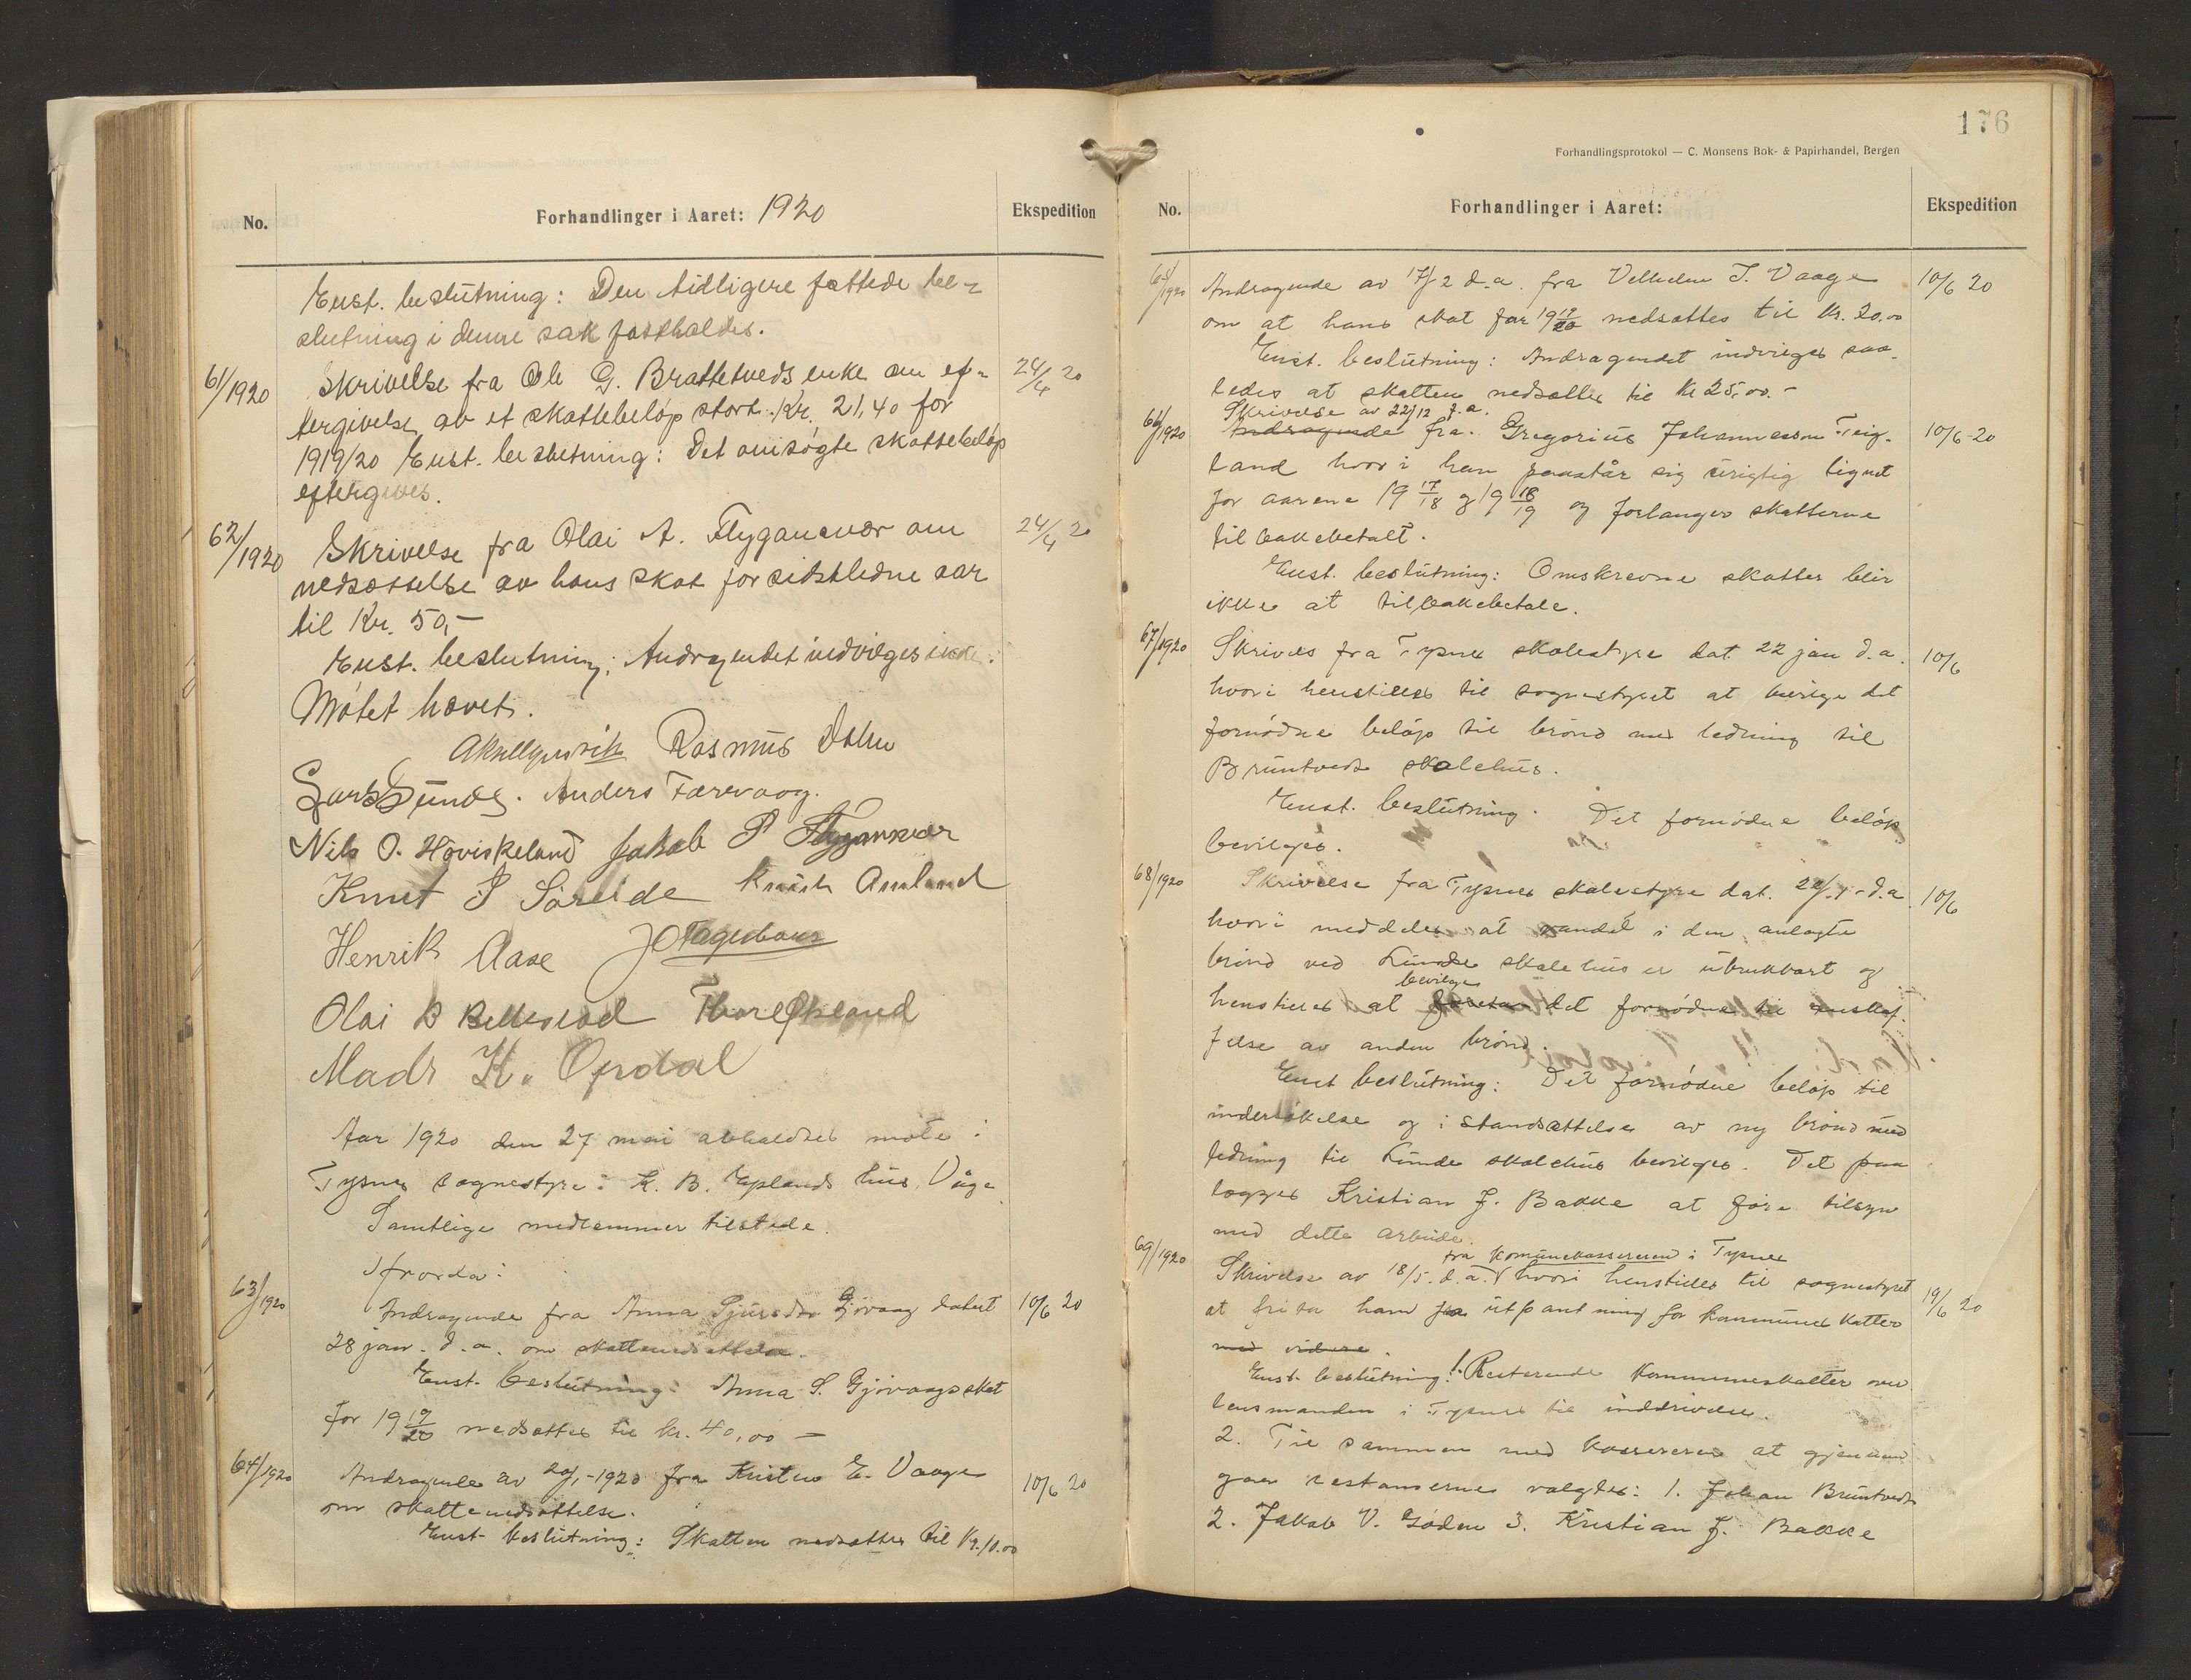 No.
Forhandlinger i Aaret: 1920
Ekspedition
Enst. beslutning: Den tidligere fattede be-
slutning i denne sak fastholdes.
61/1920 Skrivelse fra Ole G. Brattetveds enke om ef- 24/4 20
tergivelse av et skattebeløp stort Kr. 21,40 for
1919/20 Enst. beslutning: Det omsøgte skattebeløp
eftergives.
62/1920 Skrivelse fra Olai A. Flyganevær om 24/4 20
nedsættelse av hans skat for sidstledne aar
til Kr. 50,-
Enst. beslutning: Andragendet indvilges ikke.
Møtet hævet.
Rasmus
Lars Sunde. Anders Færevaag.
Nils O. Høviskeland Jakob P Flyganvær
Knut S Søreide Knut Amland
Henrik Aase
Olai B Thore Økland
Mads K. Opdal
Aar 1920 den 27 mai avholdtes møte i
Tysnes sognestyre i K. B. Eplands hus, Våge
Samtlige medlemmer tilstede.
Ifrorda:
63/1920 Andragende fra Anna Sjursdtr Gjøvaag datert 10/6 20
28 jan. d.a. om skattenedsættelse.
Enst. beslutning: Anna S. Gjøvaags skat
for 19 19/20 nedsættes til kr. 40,00 –
64/1920 Andragende av 20/1-1920 fra Kristen E. Vaage 10/6 20
om skattenedsættelse.
Enst. beslutning: Skatten nedsættes til Kr. 10.00
176
Forhandlingsprotokol — C. Monsens Bok- & Papirhandel, Bergen
No.
Forhandlinger i Aaret:
Ekspedition
65/1920 Andragende av 17/2 d.a. fra Velhelm J. Vaage 10/6 20
om at hans skat for 19 19/20 nedsættes til Kr. 20.00
Enst. beslutning: Andragendet indvilges saa-
ledes at skatten nedsættes til Kr 25,00.-
Skrivelse av 22/12 f.a.
66/1920 Andragende fra Gregorius Johannessen Teig- 10/6-20
land hvori han paastår sig urigtig lignet
for aarene 19 17/18 og 19 18/19 og forlanger skatterne
tilbakebetalt.
Enst. beslutning: Omskrevne skatter blir
ikke at tilbakebetale.
67/1920 Skrives fra Tysnes skolestyre dat. 22 jan d.a. 10/6
hvori henstilles til sognestyret at bevilge det
fornødne beløp til brønd med ledning til
Bruntveds skolehus.
Enst. beslutning. Det fornødne beløp
bevilges.
68/1920 Skrivelse fra Tysnes skolestyre dat. 22/1-d.a. 10/6
hvori meddeles at vandet i den anlagte
brønd ved Lunde skolehus er ubrukbart og
bevilge
henstilles at det fornødne til anskaf-
felse av anden brønd.
Enst beslutning: Det fornødne beløp til
undersøkelse og i standsættelse av ny brønd med
ledning til Lunde skolehus bevilges. Det paa
lægges Kristian J. Bakke at føre tilsyn
med dette arbeide.
fra komunekassereren i Tysnes
69/1920 Skrivelse av 18/5. d.a. hvori henstilles til sognestyret 19/6 20
at frita ham fra utpantning for kommuneskatter
med videre.
Enst. beslutning: 1. Resterende kommuneskatter over
lensmanden i Tysnes til inddrivelse.
2. Til sammen med kassereren at gjennem
gaa restanserne valgtes: 1. Johan Bruntveds
2. Jakob V. Gøden 3. Kristian J. Bakke